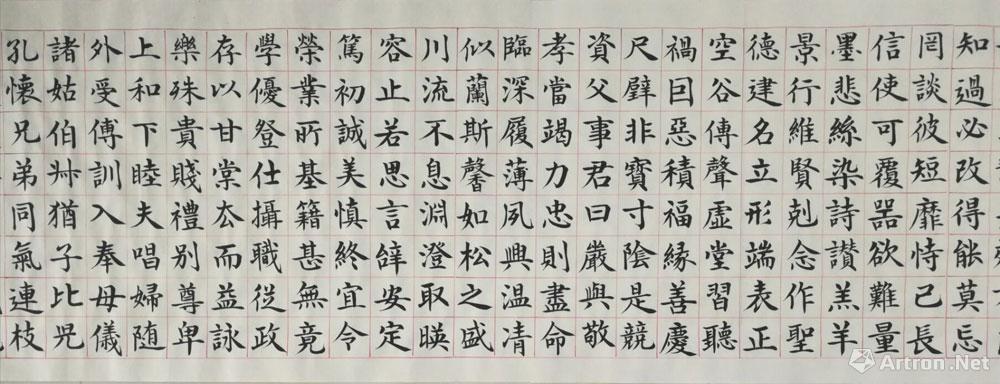 知過必改得能莫忘
罔談彼短靡恃己長
信使可覆器欲難量
墨悲絲染詩讃羔羊
景行維賢剋念作聖
德建名立形端表正
空谷傳聲虛堂習聽
禍囙惡積福緣善慶
尺璧非寶寸陰是競
資父事君曰嚴與敬
孝當竭力忠則盡命
臨深履薄夙興温清
似蘭斯馨如松之盛
川流不息淵澄取暎
容止若思言辝安定
篤初誠美慎終宜令
榮業所基籍甚無竟
學優登仕攝職從政
存以甘棠去而益詠
樂殊貴賤禮别尊卑
上和下睦夫唱婦随
外受傅訓入奉母儀
諸姑伯叔猶子比兒
孔懷兄弟同氣連枝
Artron.Net